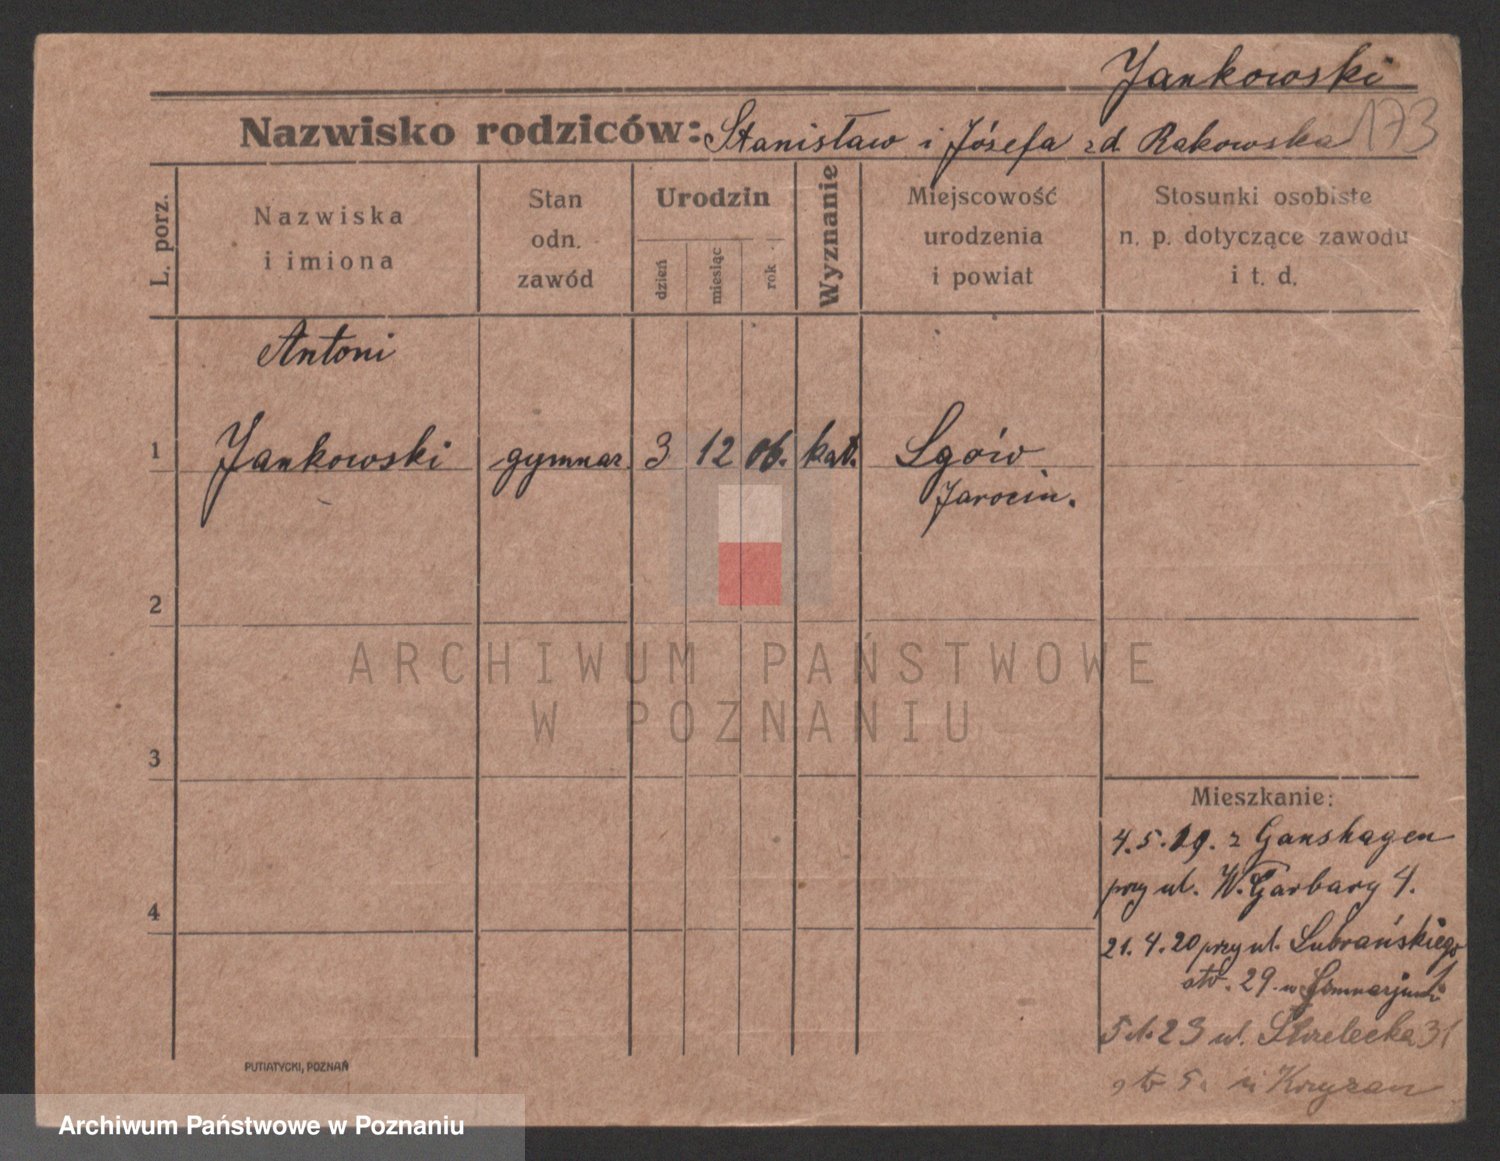 Jankowski
Nazwisko rodziców: Stanisław i Józefa zd Rakowska 173
L. porz.
Nazwiska i imiona
Stan odn. zawód
Urodzin
dzień
miesiąc
rok
Wyznanie
Miejscowość urodzenia i powiat
Stosunki osobiste n. p. dotyczące zawodu i t. d.
Antoni
1 Jankowski gymnaz. 3 12 06. kat. Lgów
Jarocin.
2
3
4
Mieszkanie:
4.5.19. z Ganshagen
przy ul. W. Garbary 4.
21.4.20 przy ul. Lubrańskiego
29. w
23 ul. Strzelecka 31
5. Kryzan
PUTIATYCKI, POZNAŃ
ARCHIWUM PAŃSTWOWE
W POZNANIU
Archiwum Państwowe w Poznaniu